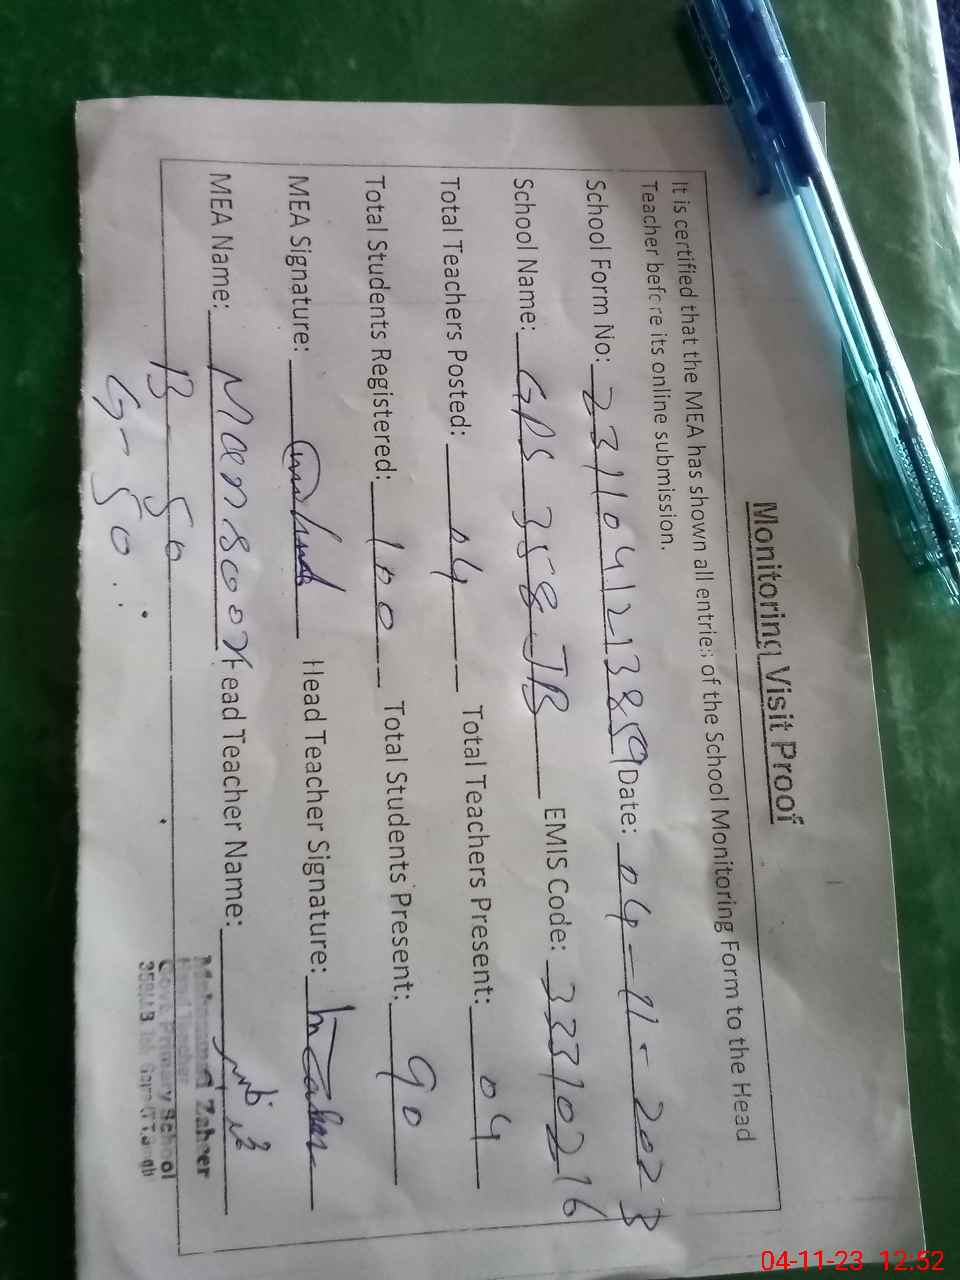 Monitoring Visit Proof
It is certified that the MEA has shown all entries of the School Monitoring Form to the Head
Teacher before its online submission.
School Form No: 2311041213859 Date: 04-11-2023
School Name: GPS 358 JB EMIS Code: 33310216
Total Teachers Posted: 04 Total Teachers Present: 04
Total Students Registered: 100 Total Students Present: 90
MEA Signature: Head Teacher Signature:
MEA Name: Mansoor Head Teacher Name:
B-50
G-50
Zaheer
Head Teacher
Govt. Primary School
04-11-23 12:52